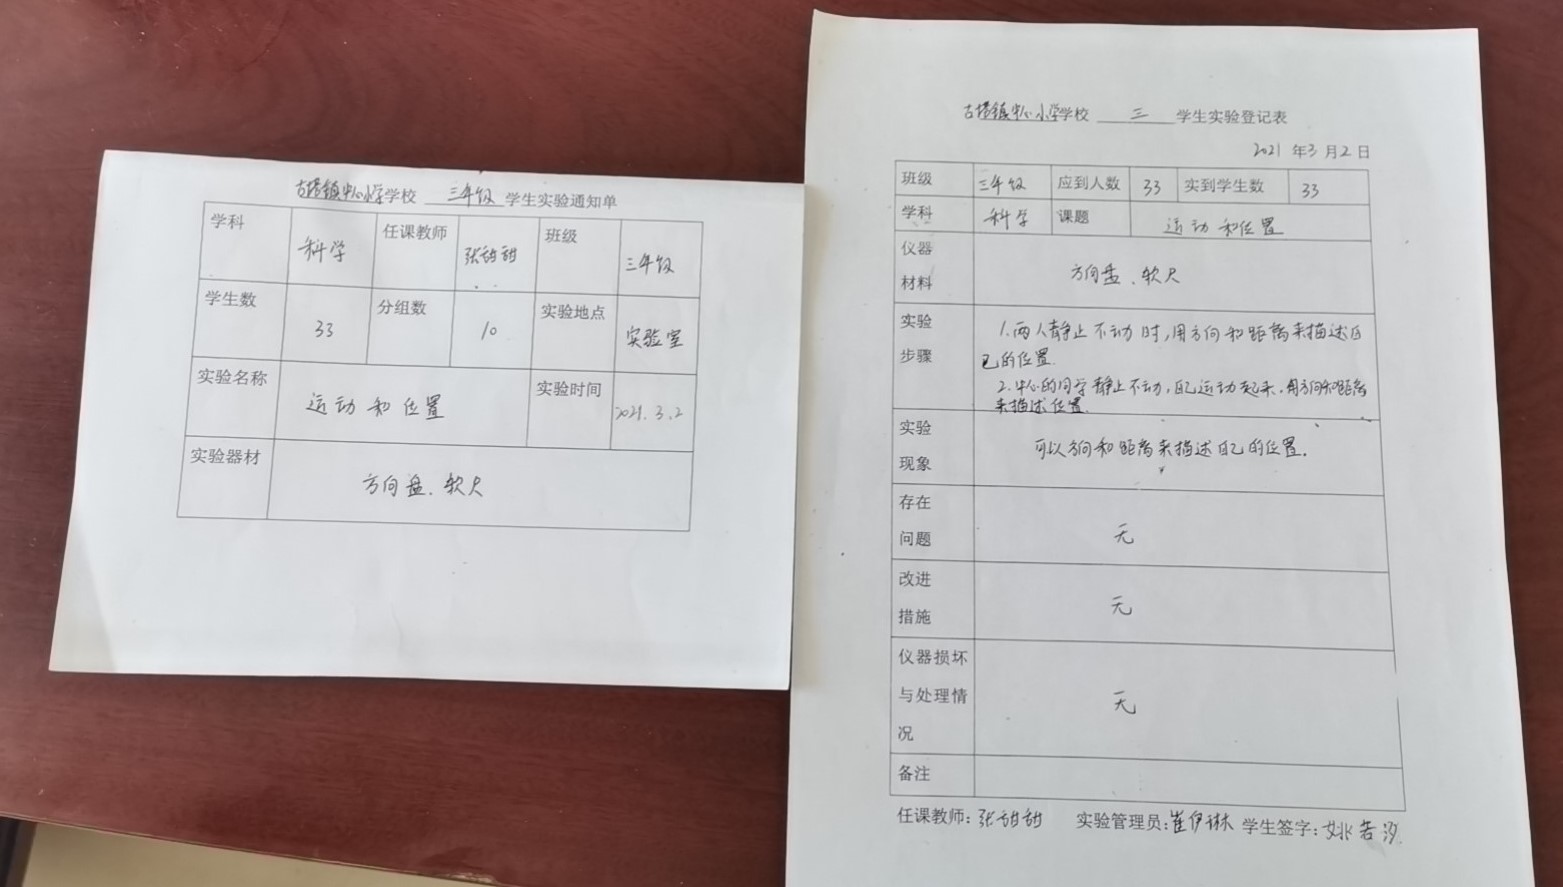 古塔镇中心小学学校 三年级 学生实验通知单
学科 科学 任课教师 张甜甜 班级 三年级
学生数 33 分组数 10 实验地点 实验室
实验名称 运动和位置 实验时间 2021.3.2
实验器材 方向盘、软尺
古塔镇中心小学学校 三 学生实验登记表
2021 年 3 月 2 日
班级 三年级 应到人数 33 实到学生数 33
学科 科学 课题 运动和位置
仪器
材料
方向盘、软尺
实验
步骤
1.两人静止不动时,用方向和距离来描述自
己的位置.
2.中心的同学静止不动,自己运动起来.用方向和距离
来描述位置.
实验
现象
可以方向和距离来描述自己的位置.
存在
问题
无
改进
措施
无
仪器损坏
与处理情
况
无
备注
任课教师:张甜甜 实验管理员:崔伊琳 学生签字:姚若汐